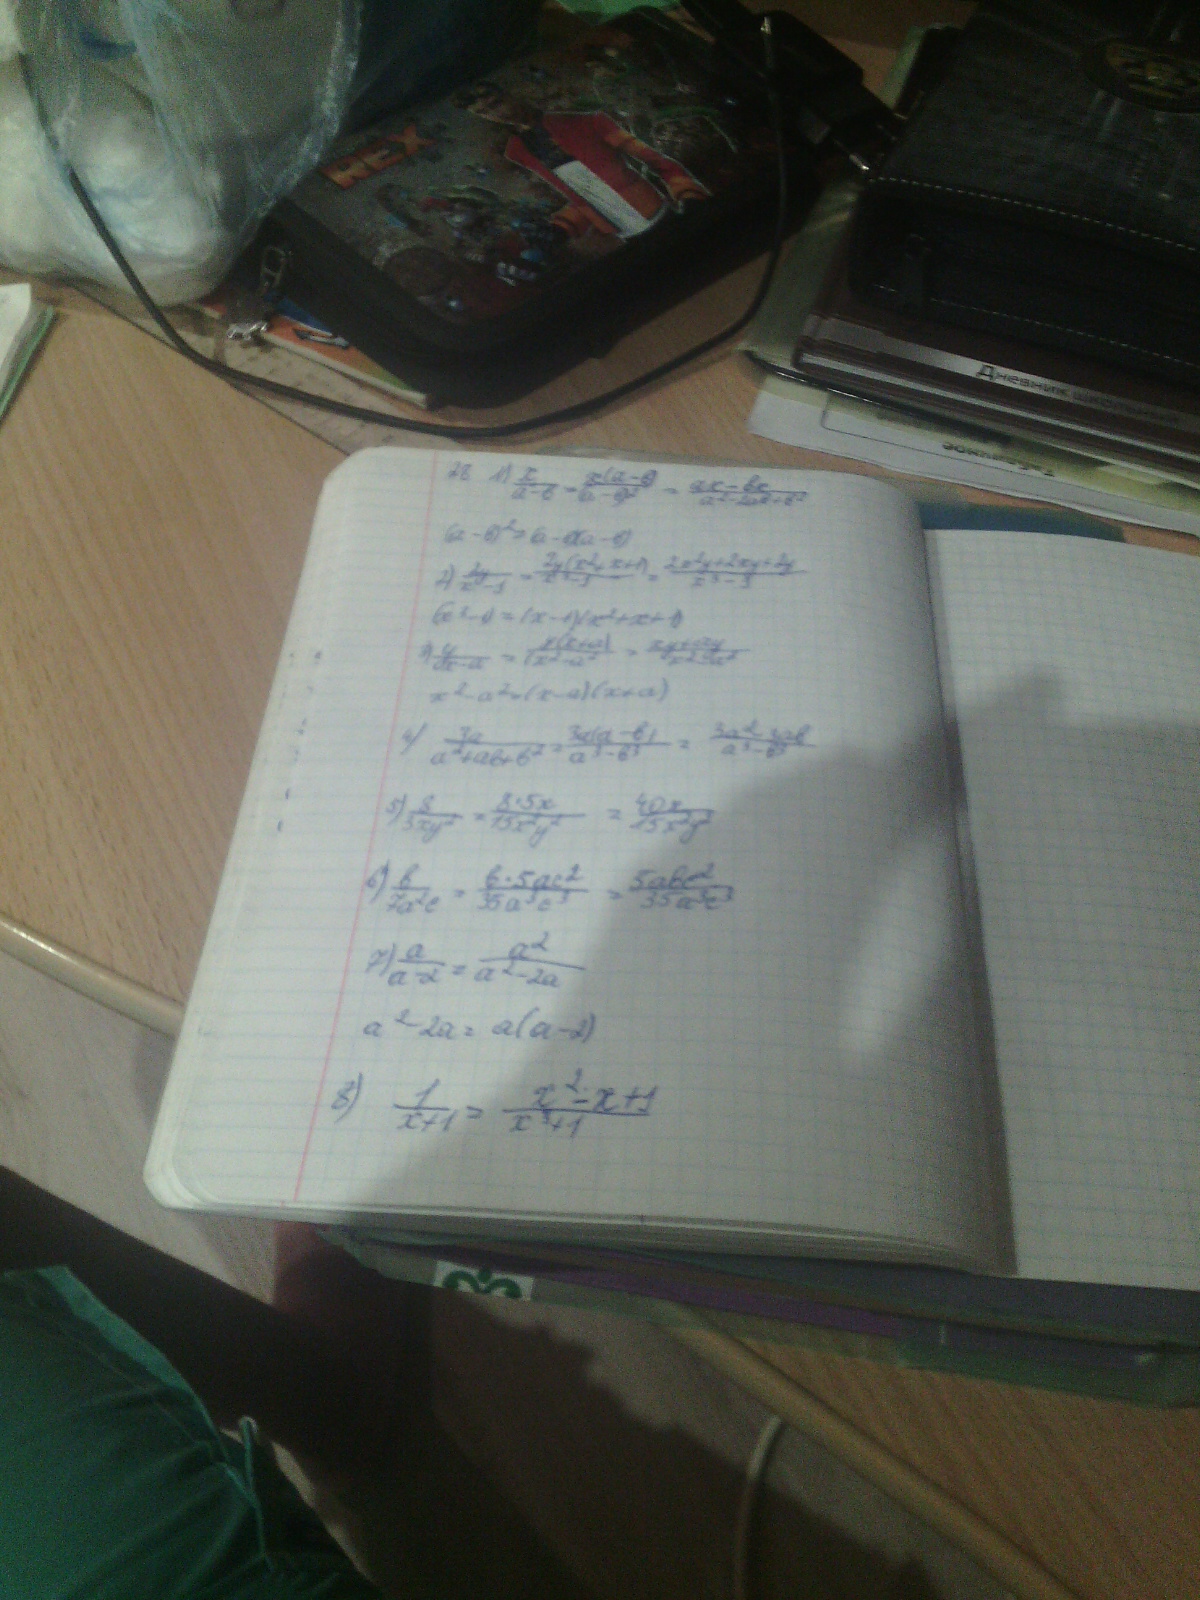 REX
Дневник школьника
1) x/(a-в) = x(a-в)/(a-в)² = ax-вx/(a²-2aв+в²)
(a-в)²=(a-в)(a-в)
2) 2y/(x-1) = 2y(x²+x+1)/(x³-1) = 2x²y+2xy+2y/(x³-1)
= (x-1)(x²+x+1)
3) y/(x-a) = y(x+a)/(x²-a²) = xy+ay/(x²-a²)
x²-a²=(x-a)(x+a)
4) 3a/(a²+aв+в²) = 3a(a-в)/(a³-в³) = 3a²-3aв/(a³-в³)
5) 8/(3xy²) = 8·5x/(15x²y²) = 40x/(15x²y²)
6) в/(7a²c) = в·5ac²/(35a³c³) = 5aвc²/(35a³c³)
7) a/(a-2) = a²/(a²-2a)
a²-2a= a(a-2)
8) 1/(x+1) = x²-x+1/(x³+1)